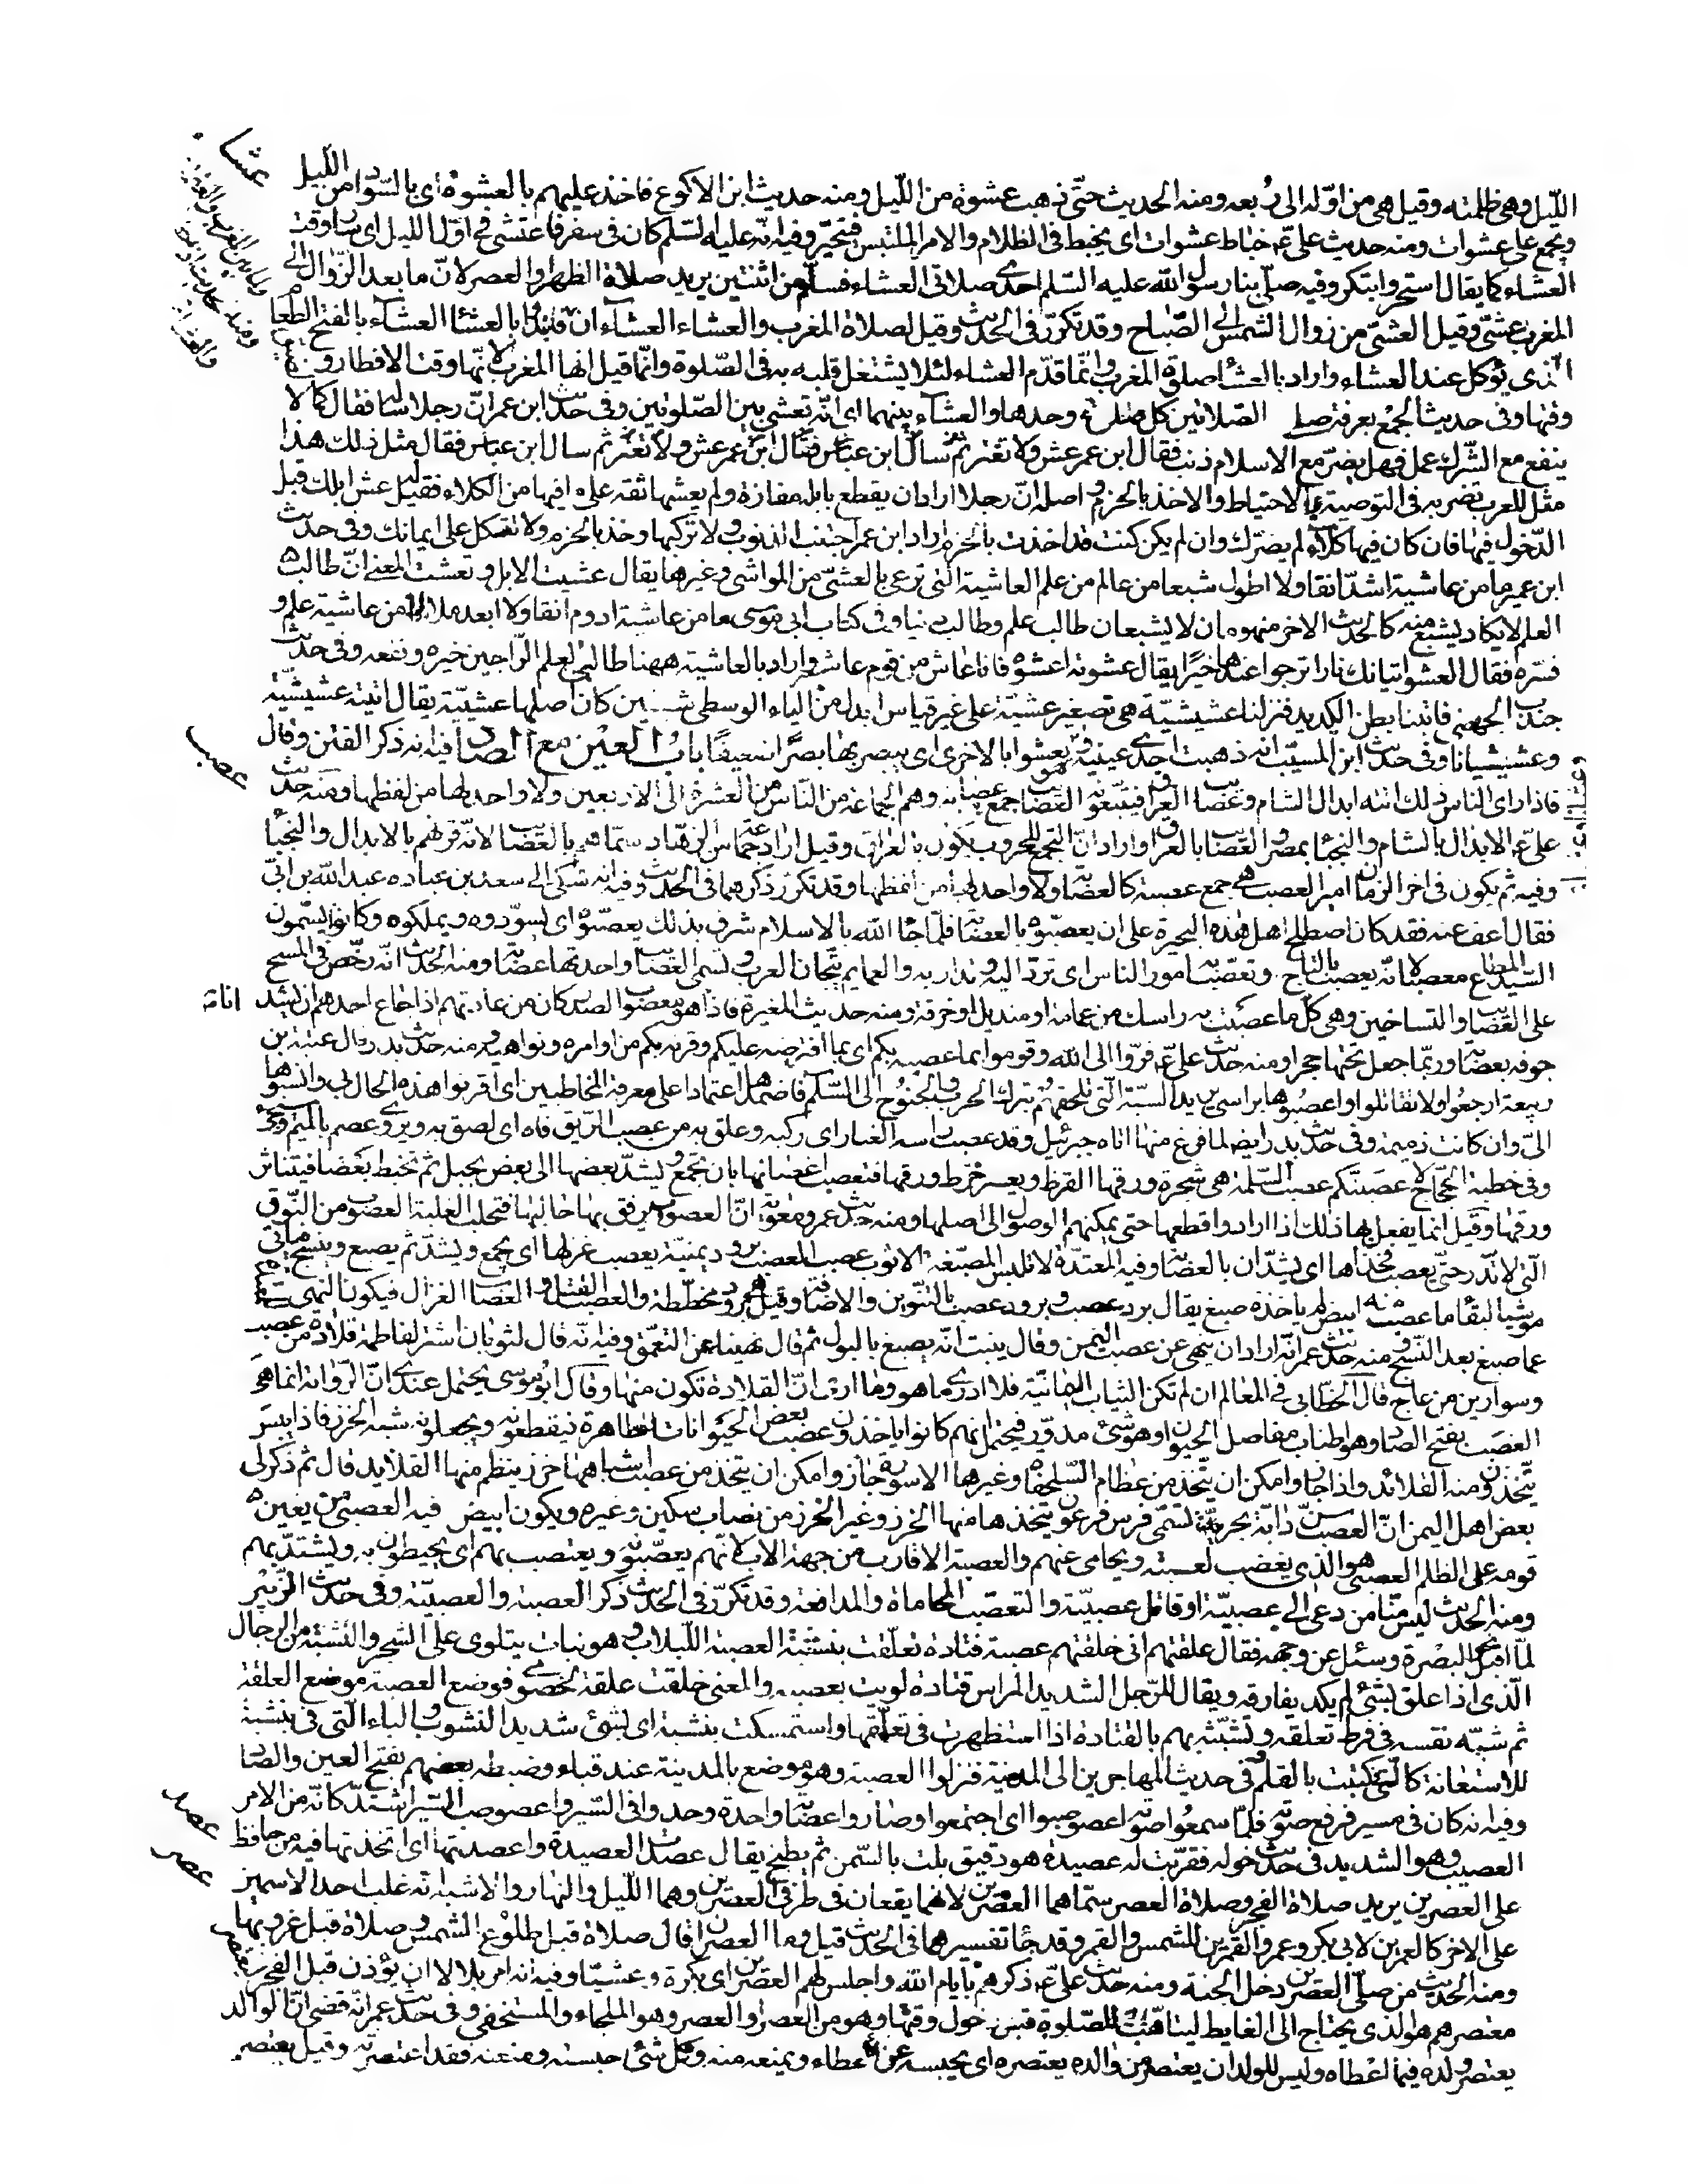 الليل وهي ظلمته وقيل هي من اوله الى ربعه ومنه الحديث حتى ذهب عشوة من الليل ومنه حديث ابن الاكوع فاخذ عليهم بالعشوة اى بالسواد من الليل
ويجمع على عشوات ومنه حديث على ع خباط عشوات اى يخبط فى الظلام والامر الملتبس فيتحير وفيه انه عليه السلم كان فى سفر فاعتشى فى اول الليل اى سار وقت
العشاء كما يقال استحر وابتكر وفيه صلى بنا رسول الله عليه السلم احدى صلاتى العشاء فسلم من اثنتين يريد صلاة الظهر او العصر لان ما بعد الزوال الى
المغرب عشى وقيل العشى من زوال الشمس الى الصباح وقد تكرر فى الحديث وقيل لصلاة المغرب والعشاء العشاآن فابدؤا بالعشاء العشاء بالفتح الطعام
الذى يؤكل عند العشاء واراد بالعشاء صلوة المغرب وانما قدم العشاء لئلا يشتغل قلبه به فى الصلوة وانما قيل انها المغرب لانها وقت الافطار
وقتها وفى حديث الجمع بعرفة صلى الصلاتين كل صلوة وحدها والعشاء بينهما اى انه تعشى بين الصلوتين وفى حديث ابن عمر ان رجلا ساله فقال كما لا
ينفع مع الشرك عمل فهل يضر مع الاسلام ذنب فقال ابن عمر عش ولا تغتر ثم سال ابن عباس فقال مثل ذلك هذا
مثل للعرب تضربه فى التوصية بالاحتياط والاخذ بالحزم واصله ان رجلا اراد ان يقطع بابله مفازة ولم يعشها ثقة على ما فيها من الكلاء فقيل له عش ابلك قبل
الدخول فيها فان كان فيها كلاء لم يضرك وان لم يكن كنت قد اخذت بالحزم اراد ابن عمر اجتنب الذنوب ولا تركبها وخذ بالحزم ولا تتكل على ايمانك وفى حديث
ابن عمير ما من عاشية اشد انقا ولا اطول شبعا من عالم من علم العاشية التى ترعى بالعشى من المواشى وغيرها يقال عشيت الابل وتعشت المعنى ان طالب
العلم لا يكاد يشبع منه كالحديث الاخر منهومان لا يشبعان طالب علم وطالب دنيا وفى كتاب ابى موسى ما من عاشية ادوم انقا ولا ابعد ملالا من عاشية علم و
فسره فقال العشو اتيانك نارا ترجو عندها خيرا يقال عشوته اعشوه فانا عاش من قوم عاشية واراد بالعاشية ههنا طالبى العلم الراجين خيره ونفعه وفى حديث
جندب الجهنى فاتينا بطن الكديد فنزلنا عشيشية هى تصغير عشية على غير قياس ابدل من الياء الوسطى شين كان اصلها عشيية يقال اتيته عشيشية
وعشيشيانا وفى حديث ابن المسيب انه ذهبت احدى عينيه وهو يعشو بالاخرى اى يبصر بها بصرا ضعيفا باب العين مع الصاد فيه انه ذكر الفتن وقال
فاذا راى الناس ذلك اتته ابدال الشام وعصائب العراق فيتبعونه العصائب جمع عصابة وهم الجماعة من الناس من العشرة الى الاربعين ولا واحد لها من لفظها ومنه حديث
على ع الابدال بالشام والنجباء بمصر والعصائب بالعراق اراد ان التجمع للحروب يكون بالعراق وقيل اراد جماعة من الزهاد سماهم بالعصائب لانه قرنهم بالابدال والنجباء
وفيه ثم يكون فى اخر الزمان امير العصب هى جمع عصبة كالعصابة ولا واحد لها من لفظها وقد تكرر ذكرهما فى الحديث وفيه انه شكى الى سعد بن عباده عبد الله بن ابى
فقال اعف عنه فقد كان اصطلح اهل هذه البحيرة على ان يعصبوه بالعصابة فلما جاء الله بالاسلام شرق بذلك يعصبوه اى يسودوه ويملكوه وكانوا يسمون
السيد المطاع معصبا لانه يعصب بالتاج وتعصب به امور الناس اى ترد اليه وتدار به والعمايم تيجان العرب وتسمى العصائب واحدتها عصابة ومنه الحديث انه رخص فى المسح
على العصائب والتساخين وهى كل ما عصبت به راسك من عمامة او منديل او خرقة ومنه حديث المغيرة فاذا هو معصوب الصدر كان من عادتهم اذا جاع احدهم ان يشد
جوفه بعصابة وربما جعل تحتها حجرا ومنه حديث على ع فروا الى الله وقوموا بما عصبه بكم اى بما افترضه عليكم وقرنه بكم من اوامره ونواهيه ومنه حديث بدر قال عتبة بن
ربيعة ارجعوا ولا تقاتلوا واعصبوها براسى يريد السبة التى تلحقهم بترك الحرب والجنوح الى السلم فاضمرها اعتمادا على معرفة المخاطبين اى اقرنوا هذه الحال بى وانسبوها
الى وان كانت ذميمة وفى حديث بدر ايضا لما فرغ منها اتاه جبرئيل وقد عصب راسه الغبار اى ركبه وعلق به من عصب الريق فاه اى لصق به ويروى عصم بالميم وسيجئ
وفى خطبة الحجاج لاعصبنكم عصب السلمة هى شجرة ورقها القرظ ويعسر خرط ورقها فتعصب اغصانها بان تجمع ويشد بعضها الى بعض بحبل ثم تخبط بعصا فيتناثر
ورقها وقيل انما يفعل بها ذلك اذا ارادوا قطعها حتى يمكنهم الوصول الى اصلها ومنه حديث عمرو ومعوية ان العصوب يرفق بها حالبها فتحلب العلبة العصوب من النوق
التى لا تدر حتى يعصب فخذاها اى يشدان بالعصابة وفيه المعتدة لا تلبس المصبغة الا ثوب عصب العصب برود يمنية يعصب غزلها اى يجمع ويشد ثم يصبغ وينسج فياتى
موشيا لبقاء ما عصب منه ابيض لم ياخذه صبغ يقال برد عصب وبرود عصب بالتنوين والاضافة وقيل هى برود مخططة والعصب الفتل والعصاب الغزال فيكون النهى
عما صبغ بعد النسج ومنه حديث عمر انه اراد ان ينهى عن عصب اليمن وقال نبئت انه يصبغ بالبول ثم قال نهينا عن التعمق وفيه انه قال لثوبان اشتر لفاطمة قلادة من عصب
وسوارين من عاج قال الخطابى فى المعالم ان لم تكن الثياب اليمانية فلا ادرى ما هو وما ارى ان القلادة تكون منها وقال ابو موسى يحتمل عندى ان الرواية انما هى
العصب بفتح الصاد وهو اطناب مفاصل الحيوان وهو شئ مدور فيحتمل انهم كانوا ياخذون عصب بعض الحيوانات الطاهرة فيقطعونه ويجعلونه شبه الخرز فاذا يبس
يتخذون منه القلائد واذا جاز وامكن ان يتخذ من عظام السلحفاة وغيرها الاسورة جاز وامكن ان يتخذ من عصب اشباهها خرز ينظم منها القلايد قال ثم ذكر لى
بعض اهل اليمن ان العصب سن دابة بحرية تسمى فرس فرعون يتخذ منها الخرز وغير الخرز من نصاب سكين وغيره ويكون ابيض فيه العصبى من يعين
قومه على الظلم العصبى هو الذى يغضب لعصبته ويحامى عنهم والعصبة الاقارب من جهة الاب لانهم يعصبونه ويعتصب بهم اى يحيطون به ويشتد بهم
ومنه الحديث ليس منا من دعى الى عصبية او قاتل عصبية والتعصب المحاماة والمدافعة وقد تكرر فى الحديث ذكر العصبة والعصبية وفى حديث الزبير
لما اقبل نحو البصرة وسئل عن وجهه فقال علقتهم انى خلقتهم عصبة قتادة تعلقت بنشبة العصبة اللبلاب وهو نبات يتلوى على الشجر والنشبة من الرجال
الذى اذا علق بشئ لم يكد يفارقه ويقال للرجل الشديد المراس قتادة لويت بعصبه والمعنى خلقت علقة لخصومى فوضع العصبة موضع العلقة
ثم شبه نفسه فى فرط تعلقه وتشبثه بهم بالقتادة اذا استظهرت فى تعلقها واستمسكت بنشبة اى بشئ شديد النشوب والباء التى فى بنشبة
للاستعانة كالتى فى كتبت بالقلم وفى حديث المهاجرين الى المدينة فنزلوا العصبة وهو موضع بالمدينة عند قباء وضبطه بعضهم بفتح العين والصاد
وفيه انه كان فى مسير فرفع صوته فلما سمعوا صوته اعصوصبوا اى اجتمعوا وصاروا عصابة واحدة وجدوا فى السير واعصوصب السير اشتد كانه من الامر
العصيب وهو الشديد فى حديث خوله فقربت له عصيدة هو دقيق يلت بالسمن ثم يطبخ يقال عصدت العصيدة واعصدتها اى اتخذتها فيه من حافظ
على العصرين يريد صلاة الفجر وصلاة العصر سماهما العصرين لانهما يقعان فى طرفى العصرين وهما الليل والنهار والاشبه انه غلب احد الاسمين
على الاخر كالعمرين لابى بكر وعمر والقمرين للشمس والقمر وقد جاء تفسيرهما فى الحديث قيل وما العصران قال صلاة قبل طلوع الشمس وصلاة قبل غروبها
ومنه الحديث من صلى العصرين دخل الجنة ومنه حديث على ع ذكرهم بايام الله واجلس لهم العصرين اى بكرة وعشيا وفيه انه امر بلالا ان يؤذن قبل الفجر
معتصرهم هو الذى يحتاج الى الغايط ليتاهب للصلوة قبل دخول وقتها وهو من العصر او العصر وهو الملجاء والمستخفى وفى حديث عمر انه قضى ان الوالد
يعتصر ولده فيما اعطاه وليس للولد ان يعتصر من والده يعتصره اى يحبسه عن الاعطاء ويمنعه منه وكل شئ حبسته ومنعته فقد اعتصرته وقيل يعتصر
عشا
عصب
عصد
عصر